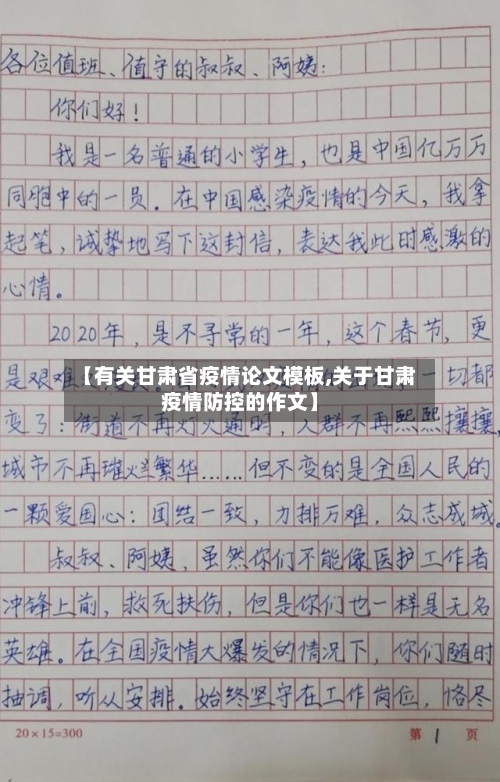 各位值班、值守的叔叔、阿姨:
你们好!
我是一名普通的小学生,也是中国亿万万
同胞中的一员。在中国感染疫情的今天,我拿
起笔,诚挚地写下这封信,表达我此时感激的
心情。
2020年,是不寻常的一年,这个春节,更
是艰难
【有关甘肃省疫情论文模板,关于甘肃
疫情防控的作文】
一切都
变了:街道不再灯火通明,人群不再熙熙攘攘,
城市不再璀烂繁华……但不变的是全国人民的
一颗爱国心:团结一致,力排万难,众志成城。
叔叔、阿姨,虽然你们不能像医护工作者
冲锋上前,救死扶伤,但是你们也一样是无名
英雄。在全国疫情大爆发的情况下,你们随时
抽调,听从安排。始终坚守在工作岗位,恪尽
20×15=300 第 1 页